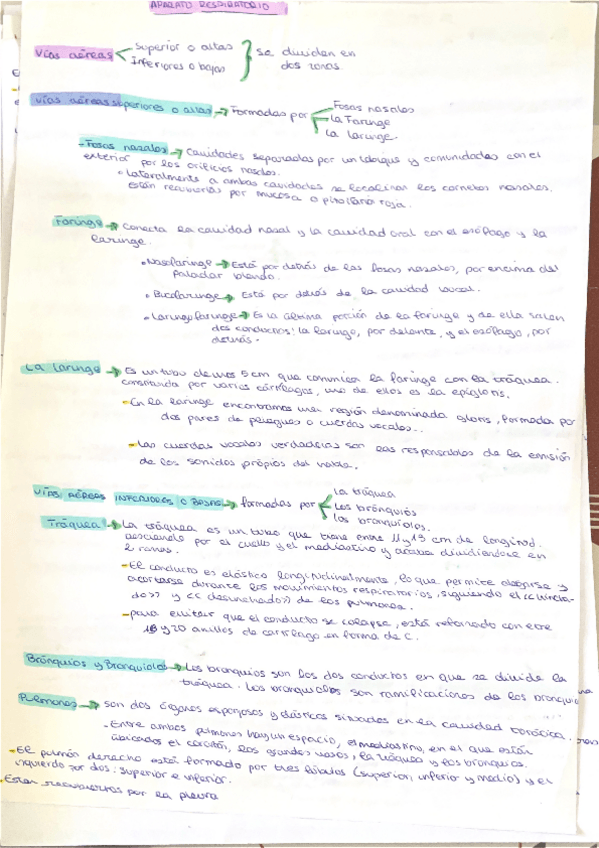 APARATO RESPIRATORIO
Vías aéreas Superior o altas
Inferiores o bajas
se dividen en
dos zonas
Vías aéreas superiores o altas → Formadas por Fosas nasales
La Faringe
La laringe
- Fosas nasales → Cavidades separadas por un tabique y comunicadas con el
exterior por los orificios nasales.
• Lateralmente a ambas cavidades se localizan los cornetes nasales.
están recubiertas por mucosa o pituitaria roja.
Faringe → Conecta la cavidad nasal y la cavidad oral con el esófago y la
laringe.
• Nasofaringe → Está por detrás de las fosas nasales, por encima del
paladar blando.
• Bucofaringe → Está por detrás de la cavidad bucal.
• Laringofaringe → Es la última porción de la faringe y de ella salen
dos conductos: la laringe, por delante, y el esófago, por
detrás.
La laringe → Es un tubo de unos 5 cm que comunica la faringe con la tráquea.
constituida por varios cártilagos, uno de ellos es la epiglotis.
- En la laringe encontramos una región denominada glotis, formada por
dos pares de pliegues o cuerdas vocales.
- Las cuerdas vocales verdaderas son las responsables de la emisión
de los sonidos própios del habla.
VÍAS AÉREAS INFERIORES O BAJAS → formadas por La tráquea
Los brónquios
los bronquiolos.
Tráquea → La tráquea es un tubo que tiene entre 11 y 13 cm de longitud.
desciende por el cuello y el mediastino y acaba dividiendose en
2 ramas.
- El conducto es elástico longitudinalmente, lo que permite alargarse y
acortarse durante los movimientos respiratorios, siguiendo el << hincha-
do>> y << desinchado>> de los pulmones.
- para evitar que el conducto se colapse, está reforzado con entre
y 20 anillos de cartílago en forma de C.
Brónquios y Bronquiolos → Los bronquios son los dos conductos en que se divide la
tráquea. Los bronquiolos son ramificaciones de los bronquio
Pulmones → son dos órganos esponjosos y elásticos situados en la cavidad torácica.
- Entre ambos pulmones hay un espacio, el mediastino, en el que están
ubicados el corazón, los grandes vasos, la tráquea y los bronquios.
- El pulmón derecho está formado por tres lóbulos (superior, inferior y medio) y el
izquierdo por dos: superior e inferior.
. Estan recubiertos por la pleura